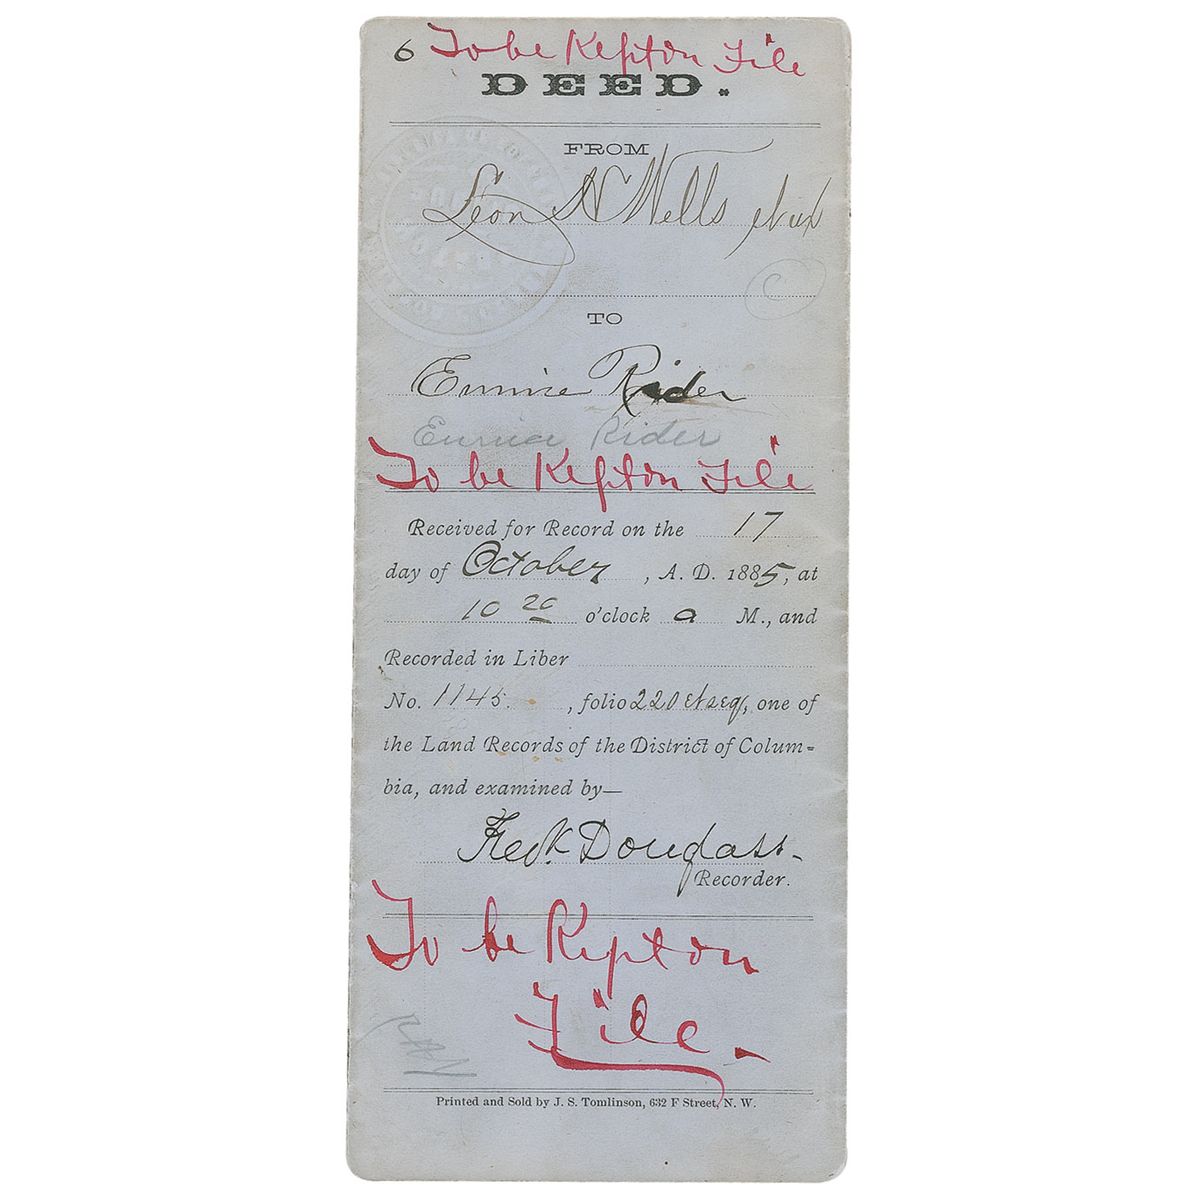 6 To be Kept on File
DEED.
FROM
Leon H Wells et ux
C
TO
Rider
Rider
To be Kept on File
Received for Record on the 17
day of October, A. D. 1885, at
10 20 o'clock a M., and
Recorded in Liber
No. 1145, folio 220 et seq, one of
the Land Records of the District of Colum-
bia, and examined by—
Fredk Douglass
Recorder.
To be Kept on
File.
Printed and Sold by J. S. Tomlinson, 632 F Street, N. W.